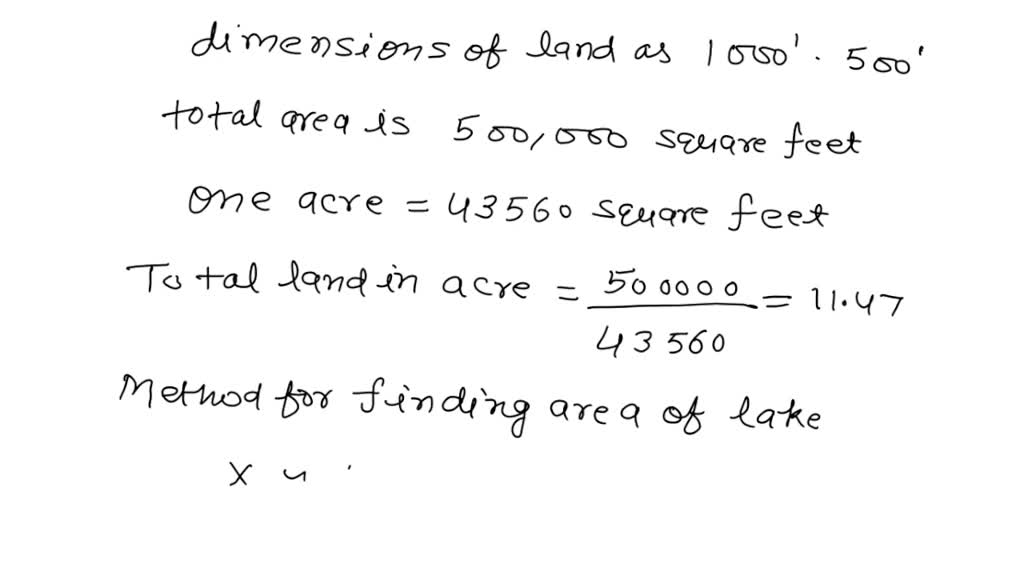 dimensions of land as 1000' . 500'
total area is 500,000 square feet
one acre = 43560 square feet
Total land in acre = 500000 / 43560 = 11.47
Method for finding area of lake
X